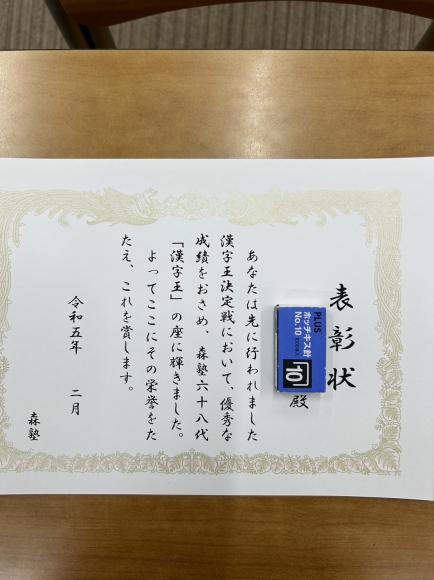 表彰状
殿
あなたは先に行われました
漢字王決定戦において、優秀な
成績をおさめ、森塾六十八代
「漢字王」の座に輝きました。
よってここにその栄誉をた
たえ、これを賞します。
令和五年 二月
森塾
PLUS
ホッチキス針
No.10
10